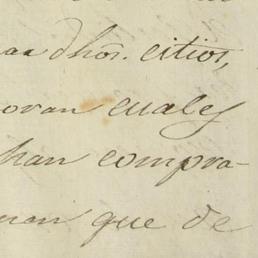 dhos. citios,
oran cuales
han compra-
nan que de